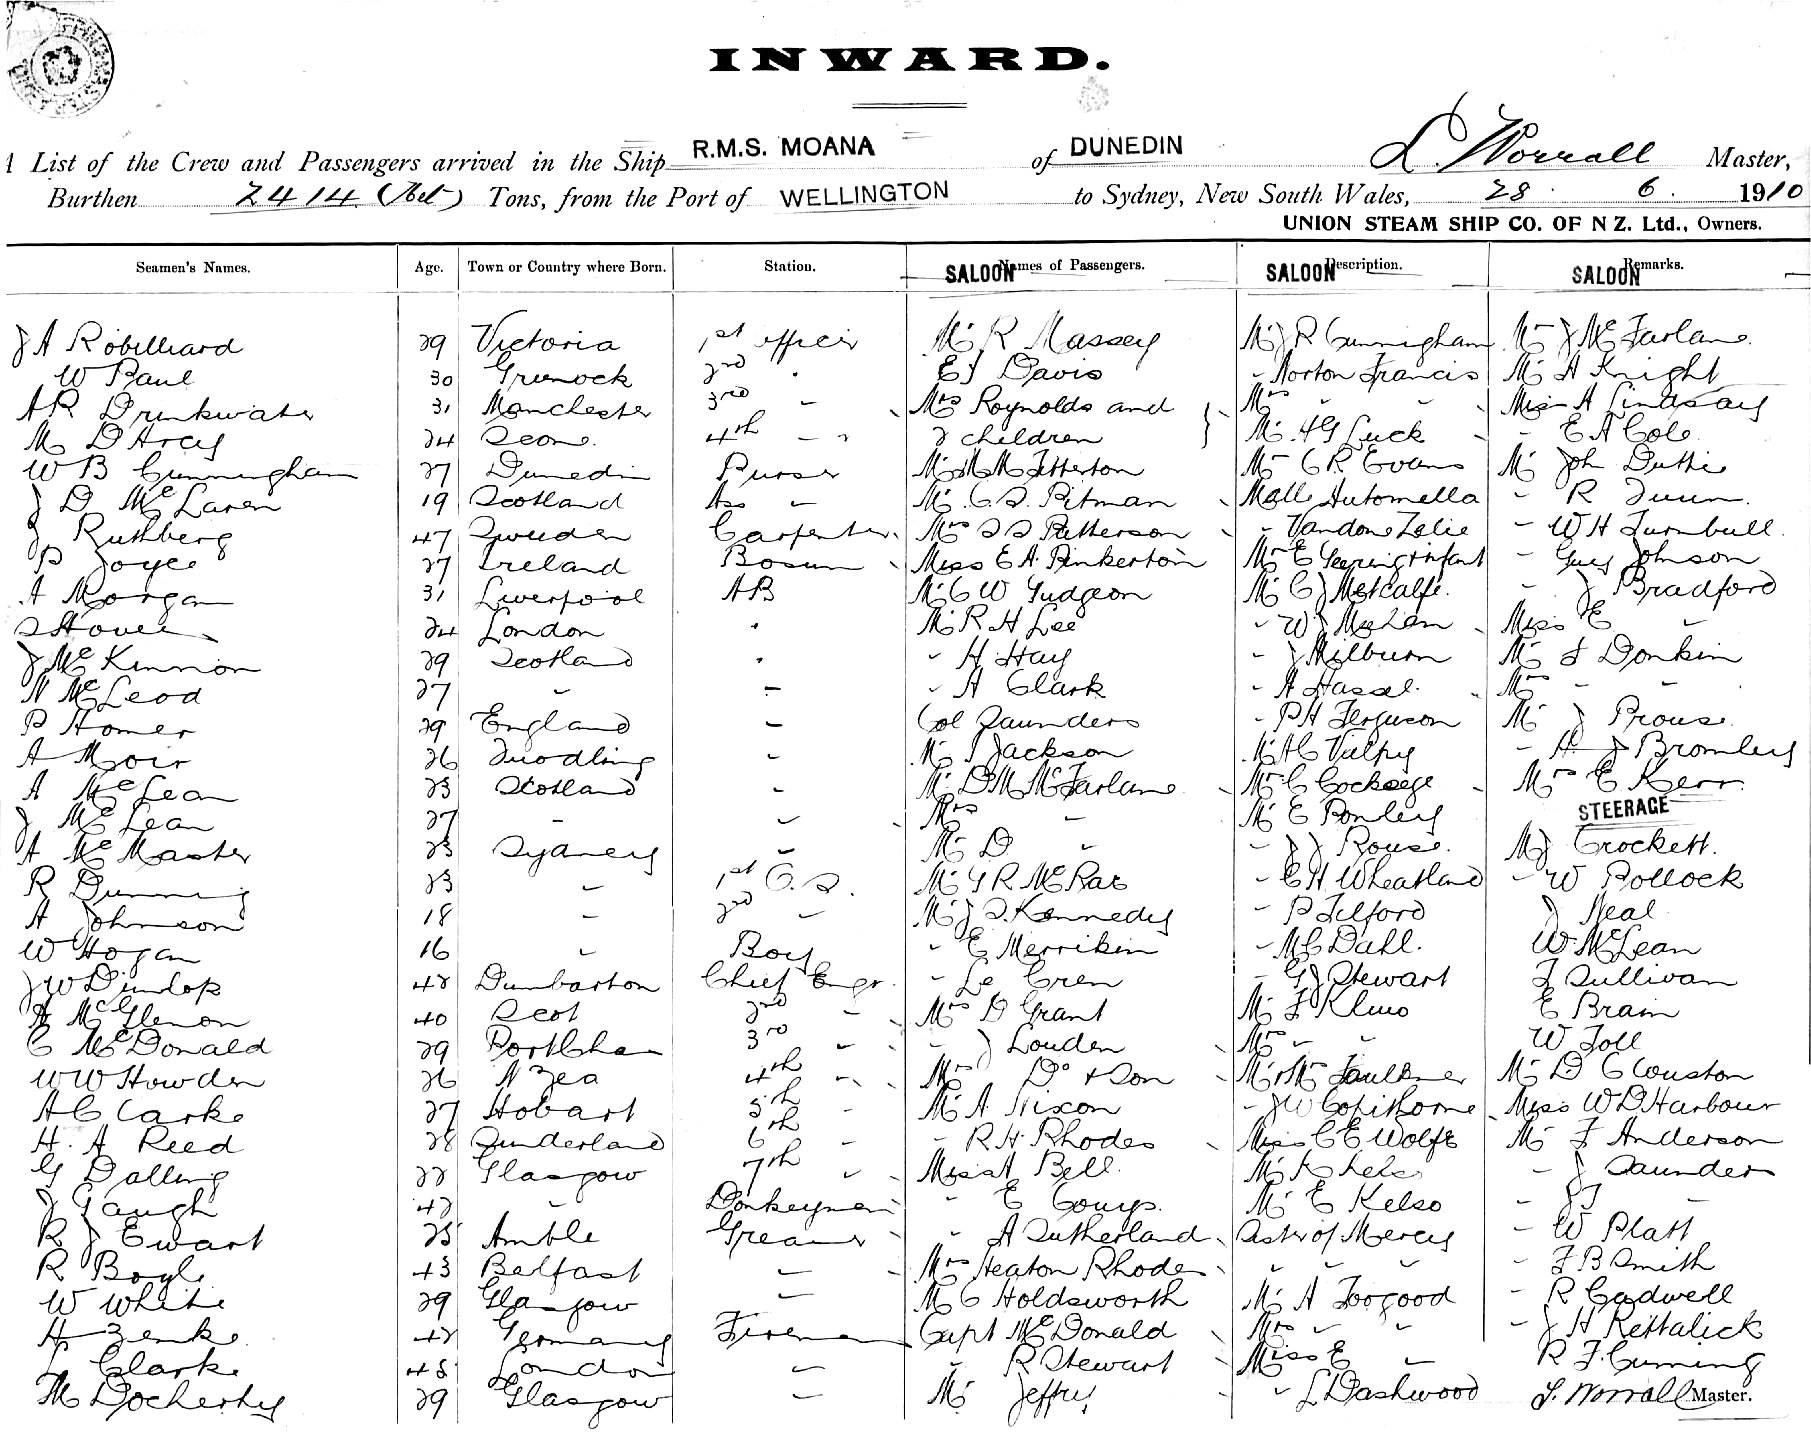 INWARD.
List of the Crew and Passengers arrived in the Ship R.M.S. MOANA of DUNEDIN L. Worrall Master,
Burthen 2414 (Net) Tons, from the Port of WELLINGTON to Sydney, New South Wales, 28 . 6 . 1910
UNION STEAM SHIP CO. OF N Z. Ltd., Owners.
Seamen's Names. Age. Town or Country where Born. Station. Names of Passengers. Description. Remarks.
SALOON SALOON SALOON
J A Robilliard 29 Victoria 1st officer Mr R Massey Mr J R Cunningham Mr J McFarlane.
W Paul 30 Greenock 2nd " E J Davis - Norton Francis Mr A Knight
A R Drinkwater 31 Manchester 3rd - Mrs Reynolds and Mrs - - Miss A Lindsay
M D'Arcy 24 4th - " 2 children Mr H G Luck - E A Cole
W B Cunningham 27 Dunedin Purser Mr Mr C R Evans Mr John Duthie
J D McLaren 19 Scotland Ass - Mr C S Pitman Mdlle Automella - R
J Ruthberg 47 Sweden Carpenter Mrs S S Patterson - - W H Turnbull.
P Joyce 27 Ireland Bosun Miss E A Pinkerton Mrs E Geering + infant - Guy Johnson
A Morgan 31 Liverpool AB Mr C W Gudgeon Mr C J Metcalfe. - J Bradford
24 London " Mr R H Lee - W J Miss E -
J McKinnon 29 Scotland " - H Hay - J Milburn Mr Donkin
N McLeod 27 - - - A Clark - A Mrs - -
P Homer 29 England - Col Saunders - P H Ferguson Mr J Prouse.
A Moir 26 - Mr Jackson Mr A C Valpy - A J Bromley
A McLean 23 Scotland - Mr D M McFarlane Mrs C Mrs E Kerr.
J McLean 27 - - Mrs - Mr E STEERAGE
A McMaster 23 Sydney - Mr D - - J J Rouse. Mr J Crockett.
R Dunning 23 - 1st O.S. Mr G R McRae - E H Wheatland - W Pollock
A Johnson 18 - 2nd - Mr J S Kennedy - P Telford J Neal
W Hogan 16 - Boy - E Merrikin - M C Dahl. W McLean
J W Dunlop 42 Dumbarton Chief Engr. - Le Cren - G J Stewart J Sullivan
A McGlenon 40 Scot 2nd - Mrs D Grant Mr F E Brain
C McDonald 29 3rd - - J Louden Mrs - - W Toll
W W Howden 26 N Zea 4th - Mrs Do + Son Mr + Mrs Faulkner Mr D Clouston
A C Clarke 27 Hobart 5th Mr A Nixon - J W Copithorne Miss W D Harbour
H. A Reed 28 Sunderland 6th - - R H Rhodes Miss C E Wolfe Mr F Anderson
G Dalling 22 Glasgow 7th - Miss A Bell. Mr - J Saunders
J Gaugh 42 - Donkeyman - E Mr E Kelso - J -
R J Ewart 25 Amble Greaser - A Sutherland Sister of Mercy - W Platt
R Boyle 43 Belfast - Mrs Heaton Rhodes - - - - F B Smith
W White 29 Glasgow - Mr C Holdsworth Mr A Toogood - R Cadwell
H Zenke 42 Germany Fireman Capt McDonald Mrs - - - J H Rettalick
Clarke 48 London - - R Stewart Miss E - R J. Cuming
M Docherty 29 Glasgow - Mr Jeffry - L Dashwood L. Worrall Master.